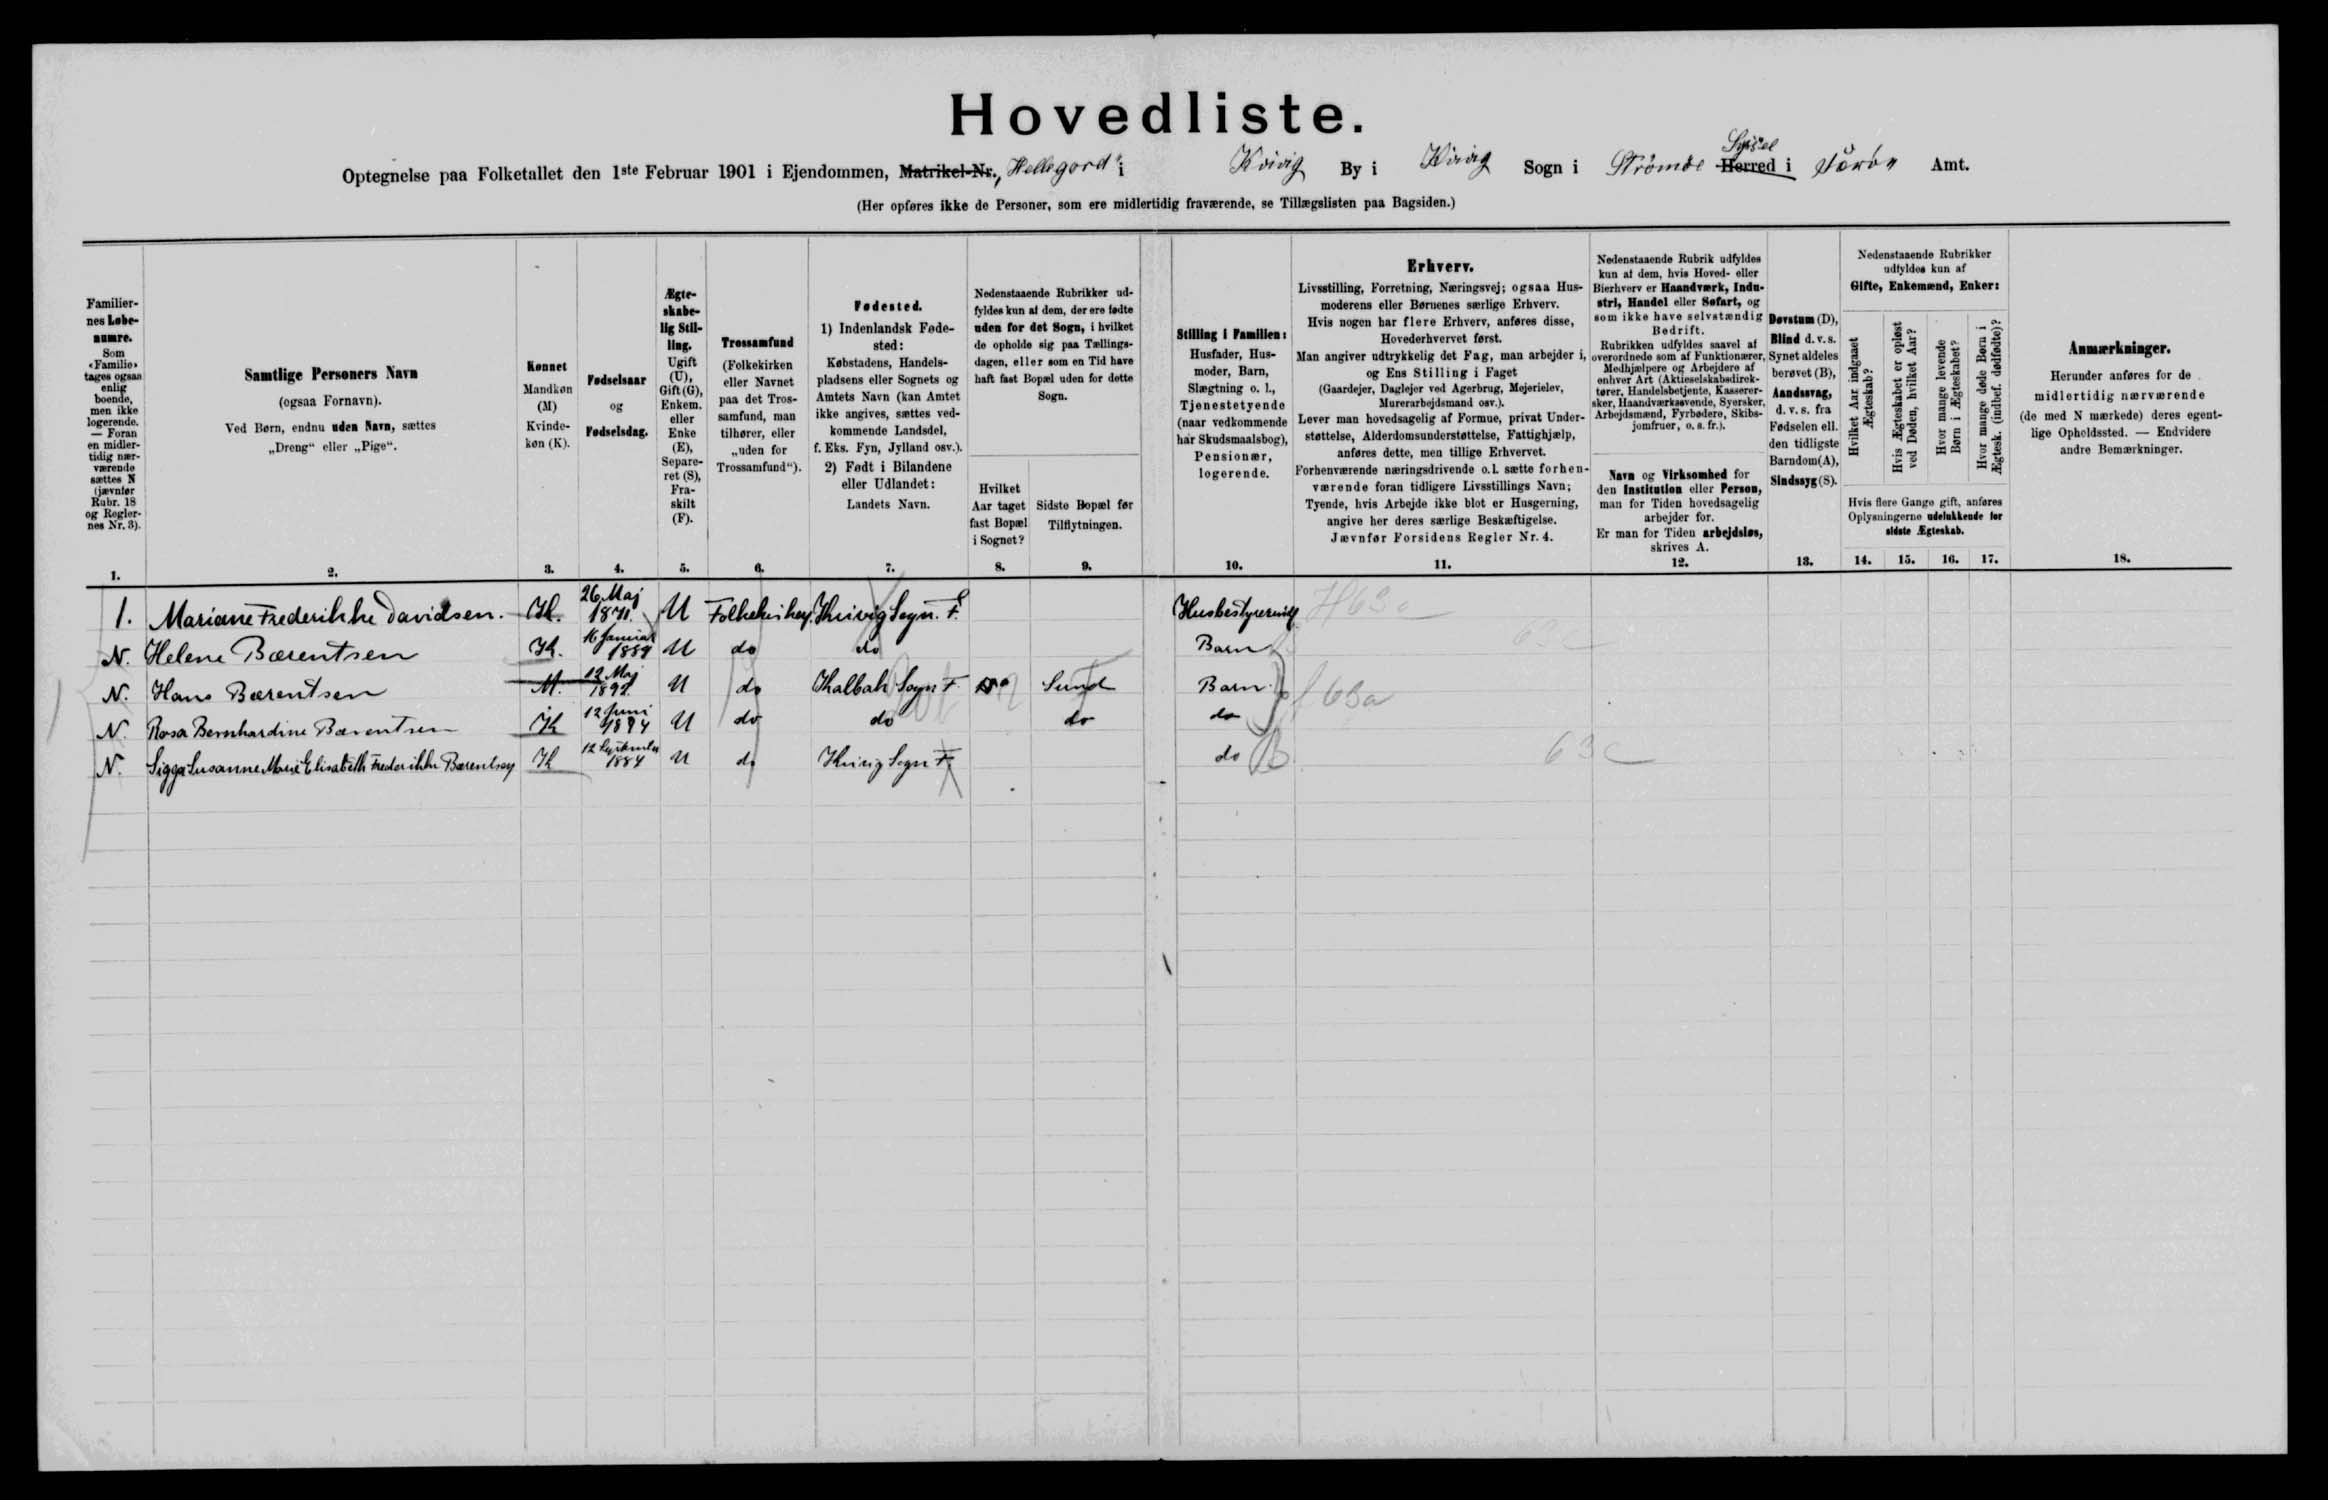 Hovedliste.
Optegnelse paa Folketallet den 1ste Februar 1901 i Ejendommen, Matrikel-Nr., Hellegord" i Kvivig By i Kvivig Sogn i Strömöe Syssel Herred i Färöe Amt.
(Her opføres ikke de Personer, som ere midlertidig fraværende, se Tillægslisten paa Bagsiden.)
Familiernes Løbenumre.
Som «Familie» tages ogsaa enlig boende, men ikke logerende. — Foran en midlertidig nærværende sættes N (jævnfør Rubr. 18 og Reglernes Nr. 3).
1.
Samtlige Personers Navn
(ogsaa Fornavn).
Ved Børn, endnu uden Navn, sættes
„Dreng“ eller „Pige“.
2.
Kønnet
Mandkøn
(M)
Kvinde-
køn (K).
3.
Fødselsaar
og
Fødselsdag.
4.
Ægte-
skabe-
lig Stil-
ling.
Ugift
(U),
Gift (G),
Enkem.
eller
Enke
(E),
Separe-
ret (S),
Fra-
skilt
(F).
5.
Trossamfund
(Folkekirken
eller Navnet
paa det Tros-
samfund, man
tilhører, eller
„uden for
Trossamfund“).
6.
Fødested.
1) Indenlandsk Føde-
sted:
Købstadens, Handels-
pladsens eller Sognets og
Amtets Navn (kan Amtet
ikke angives, sættes ved-
kommende Landsdel,
f. Eks. Fyn, Jylland osv.).
2) Født i Bilandene
eller Udlandet:
Landets Navn.
7.
Nedenstaaende Rubrikker ud-
fyldes kun af dem, der ere fødte
uden for det Sogn, i hvilket
de opholde sig paa Tællings-
dagen, eller som en Tid have
haft fast Bopæl uden for dette
Sogn.
Hvilket
Aar taget
fast Bopæl
i Sognet?
8.
Sidste Bopæl før
Tilflytningen.
9.
Stilling i Familien:
Husfader, Hus-
moder, Barn,
Slægtning o. l.,
Tjenestetyende
(naar vedkommende
har Skudsmaalsbog),
Pensionær,
logerende.
10.
Erhverv.
Livsstilling, Forretning, Næringsvej; ogsaa Hus-
moderens eller Børnenes særlige Erhverv.
Hvis nogen har flere Erhverv, anføres disse,
Hovederhvervet først.
Man angiver udtrykkelig det Fag, man arbejder i,
og Ens Stilling i Faget
(Gaardejer, Daglejer ved Agerbrug, Mejerielev,
Murerarbejdsmand osv.).
Lever man hovedsagelig af Formue, privat Under-
støttelse, Alderdomsunderstøttelse, Fattighjælp,
anføres dette, men tillige Erhvervet.
Forhenværende næringsdrivende o.l. sætte forhen-
værende foran tidligere Livsstillings Navn;
Tyende, hvis Arbejde ikke blot er Husgerning,
angive her deres særlige Beskæftigelse.
Jævnfør Forsidens Regler Nr. 4.
11.
Nedenstaaende Rubrik udfyldes
kun af dem, hvis Hoved- eller
Bierhverv er Haandværk, Indu-
stri, Handel eller Søfart, og
som ikke have selvstændig
Bedrift.
Rubrikken udfyldes saavel af
overordnede som af Funktionærer,
Medhjælpere og Arbejdere af
enhver Art (Aktieselskabsdirek-
tører, Handelsbetjente, Kasserer-
sker, Haandværkssvende, Syersker,
Arbejdsmænd, Fyrbødere, Skibs-
jomfruer, o. s. fr.).
Navn og Virksomhed for
den Institution eller Person,
man for Tiden hovedsagelig
arbejder for.
Er man for Tiden arbejdsløs,
skrives A.
12.
Døvstum (D),
Blind d. v. s.
Synet aldeles
berøvet (B),
Aandssvag,
d. v. s. fra
Fødselen ell.
den tidligste
Barndom (A),
Sindssyg (S).
13.
Nedenstaaende Rubrikker
udfyldes kun af
Gifte, Enkemænd, Enker:
Hvilket Aar indgaaet Ægteskab?
Hvis Ægteskabet er opløst ved Døden, hvilket Aar?
Hvor mange levende Børn i Ægteskabet?
Hvor mange døde Børn i Ægtesk. (indbef. dødfødte)?
Hvis flere Gange gift, anføres
Oplysningerne udelukkende for
sidste Ægteskab.
14. 15. 16. 17.
Anmærkninger.
Herunder anføres for de
midlertidig nærværende
(de med N mærkede) deres egent-
lige Opholdssted. — Endvidere
andre Bemærkninger.
18.
1. Mariane Frederikke Davidsen. K. 26 Maj 1871. U Folkekirken. Kvivig Sogn. F. Husbestyrerinde H63a
N. Helene Bærentsen K. 16 Januar 1889 U do do Barn 63c
N. Hans Bærentsen M. 12 Maj 1892 U do Kalbak Sogn F. Sund Barn 63a
N. Rosa Bernhardine Bærentsen K 12 Juni 1894 U do do do do
N. Sigga Susanne Marie Elisabeth Frederikke Bærentsen K 12 1884 U do Kvivig Sogn F. do B 63c